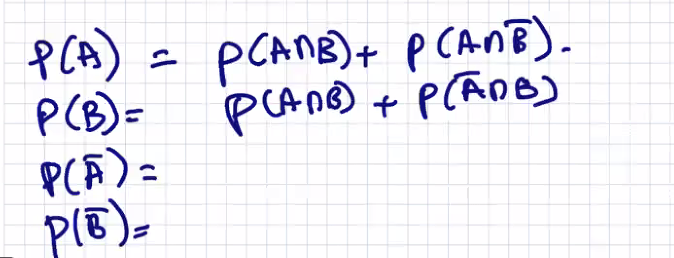 P(A) = P(A∩B) + P(A∩B̅).
P(B) = P(A∩B) + P(A̅∩B)
P(A̅) =
P(B̅) =